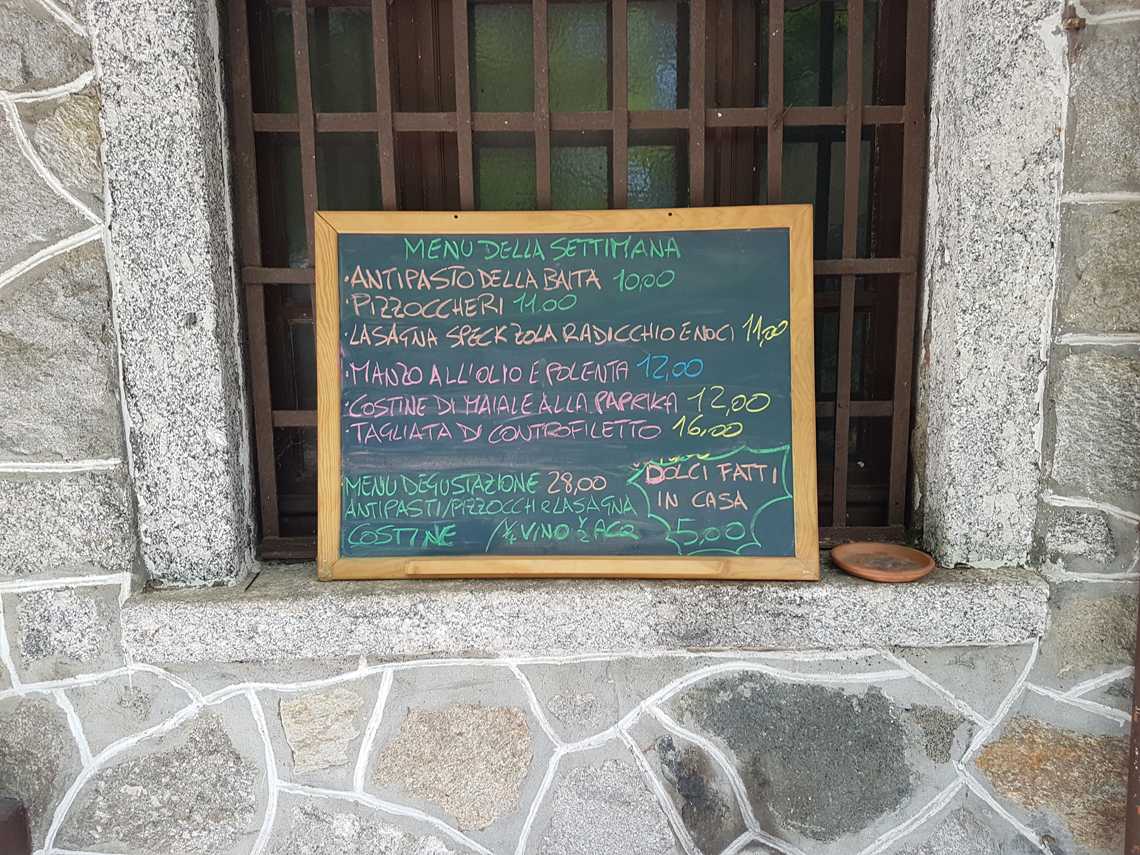 MENU DELLA SETTIMANA
• ANTIPASTO DELLA BAITA 10,00
• PIZZOCCHERI 11.00
• LASAGNA SPECK ZOLA RADICCHIO E NOCI 11,00
• MANZO ALL'OLIO E POLENTA 12,00
• COSTINE DI MAIALE ALLA PAPRIKA 12,00
• TAGLIATA DI CONTROFILETTO 16,00
MENU DEGUSTAZIONE 28,00
ANTIPASTI/PIZZOCCH E LASAGNA
COSTINE /¼ VINO ½ ACQ
DOLCI FATTI
IN CASA
5,00